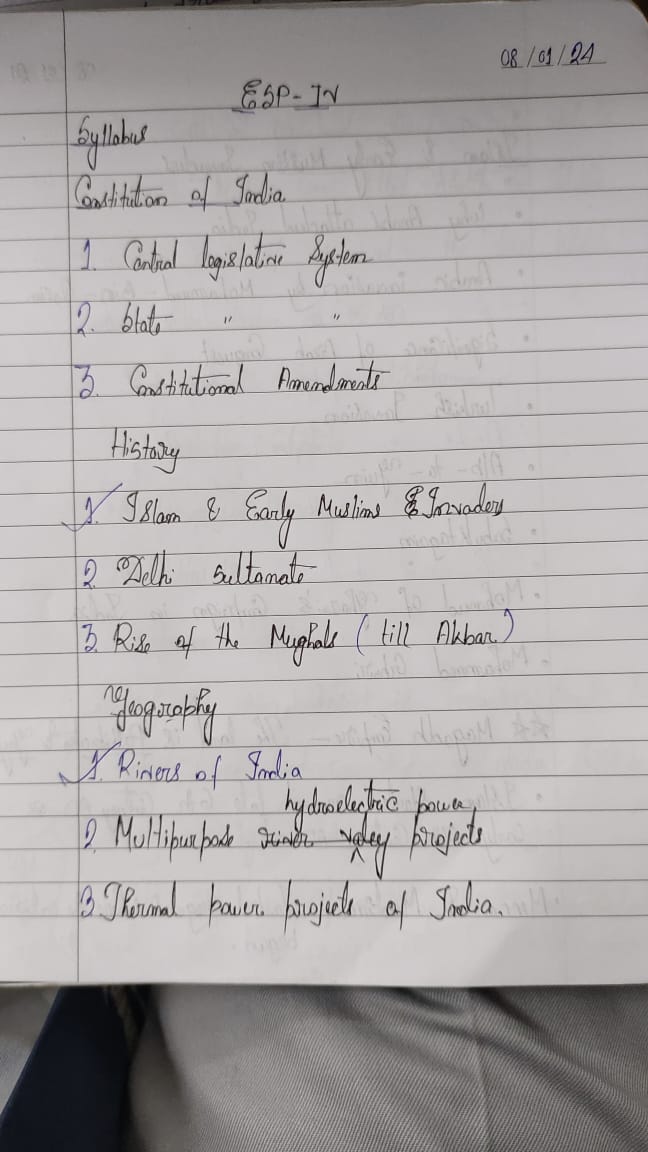 08/01/24
ESP-IV
Syllabus
Constitution of India
1. Central legislative System
2. State " "
3. Constitutional Amendments
History
1. Islam & Early Muslims Invaders
2 Delhi Sultanate
3. Rise of the Mughals (till Akbar)
Geography
1. Rivers of India
hydroelectric power
2. Multipurpose river valey projects
3. Thermal power projects of India.